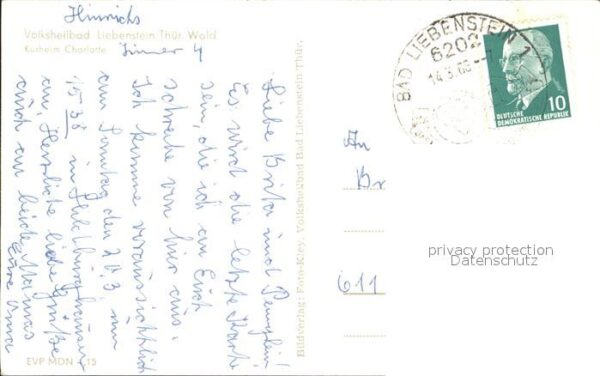 Hinrichs
Volksheilbad Liebenstein Thür. Wald
Kurheim Charlotte
Zimmer 4
Liebe Brita und
Es wird die letzte Karte
sein, die ich an Euch
schreibe von hier aus.
Ich komme voraussichtlich
am Sonntag den 20.3 um
15 38 in Hildburghausen
an. Herzliche liebe Grüße
auch an beide Mamas
Eure Oma
EVP MDN -.15
Bildverlag: Foto-Kley, Volksheilbad Bad Liebenstein Thür.
BAD LIEBENSTEIN 1
6202
14.3.66
10
DEUTSCHE
DEMOKRATISCHE REPUBLIK
An
Br
privacy protection
Datenschutz
611